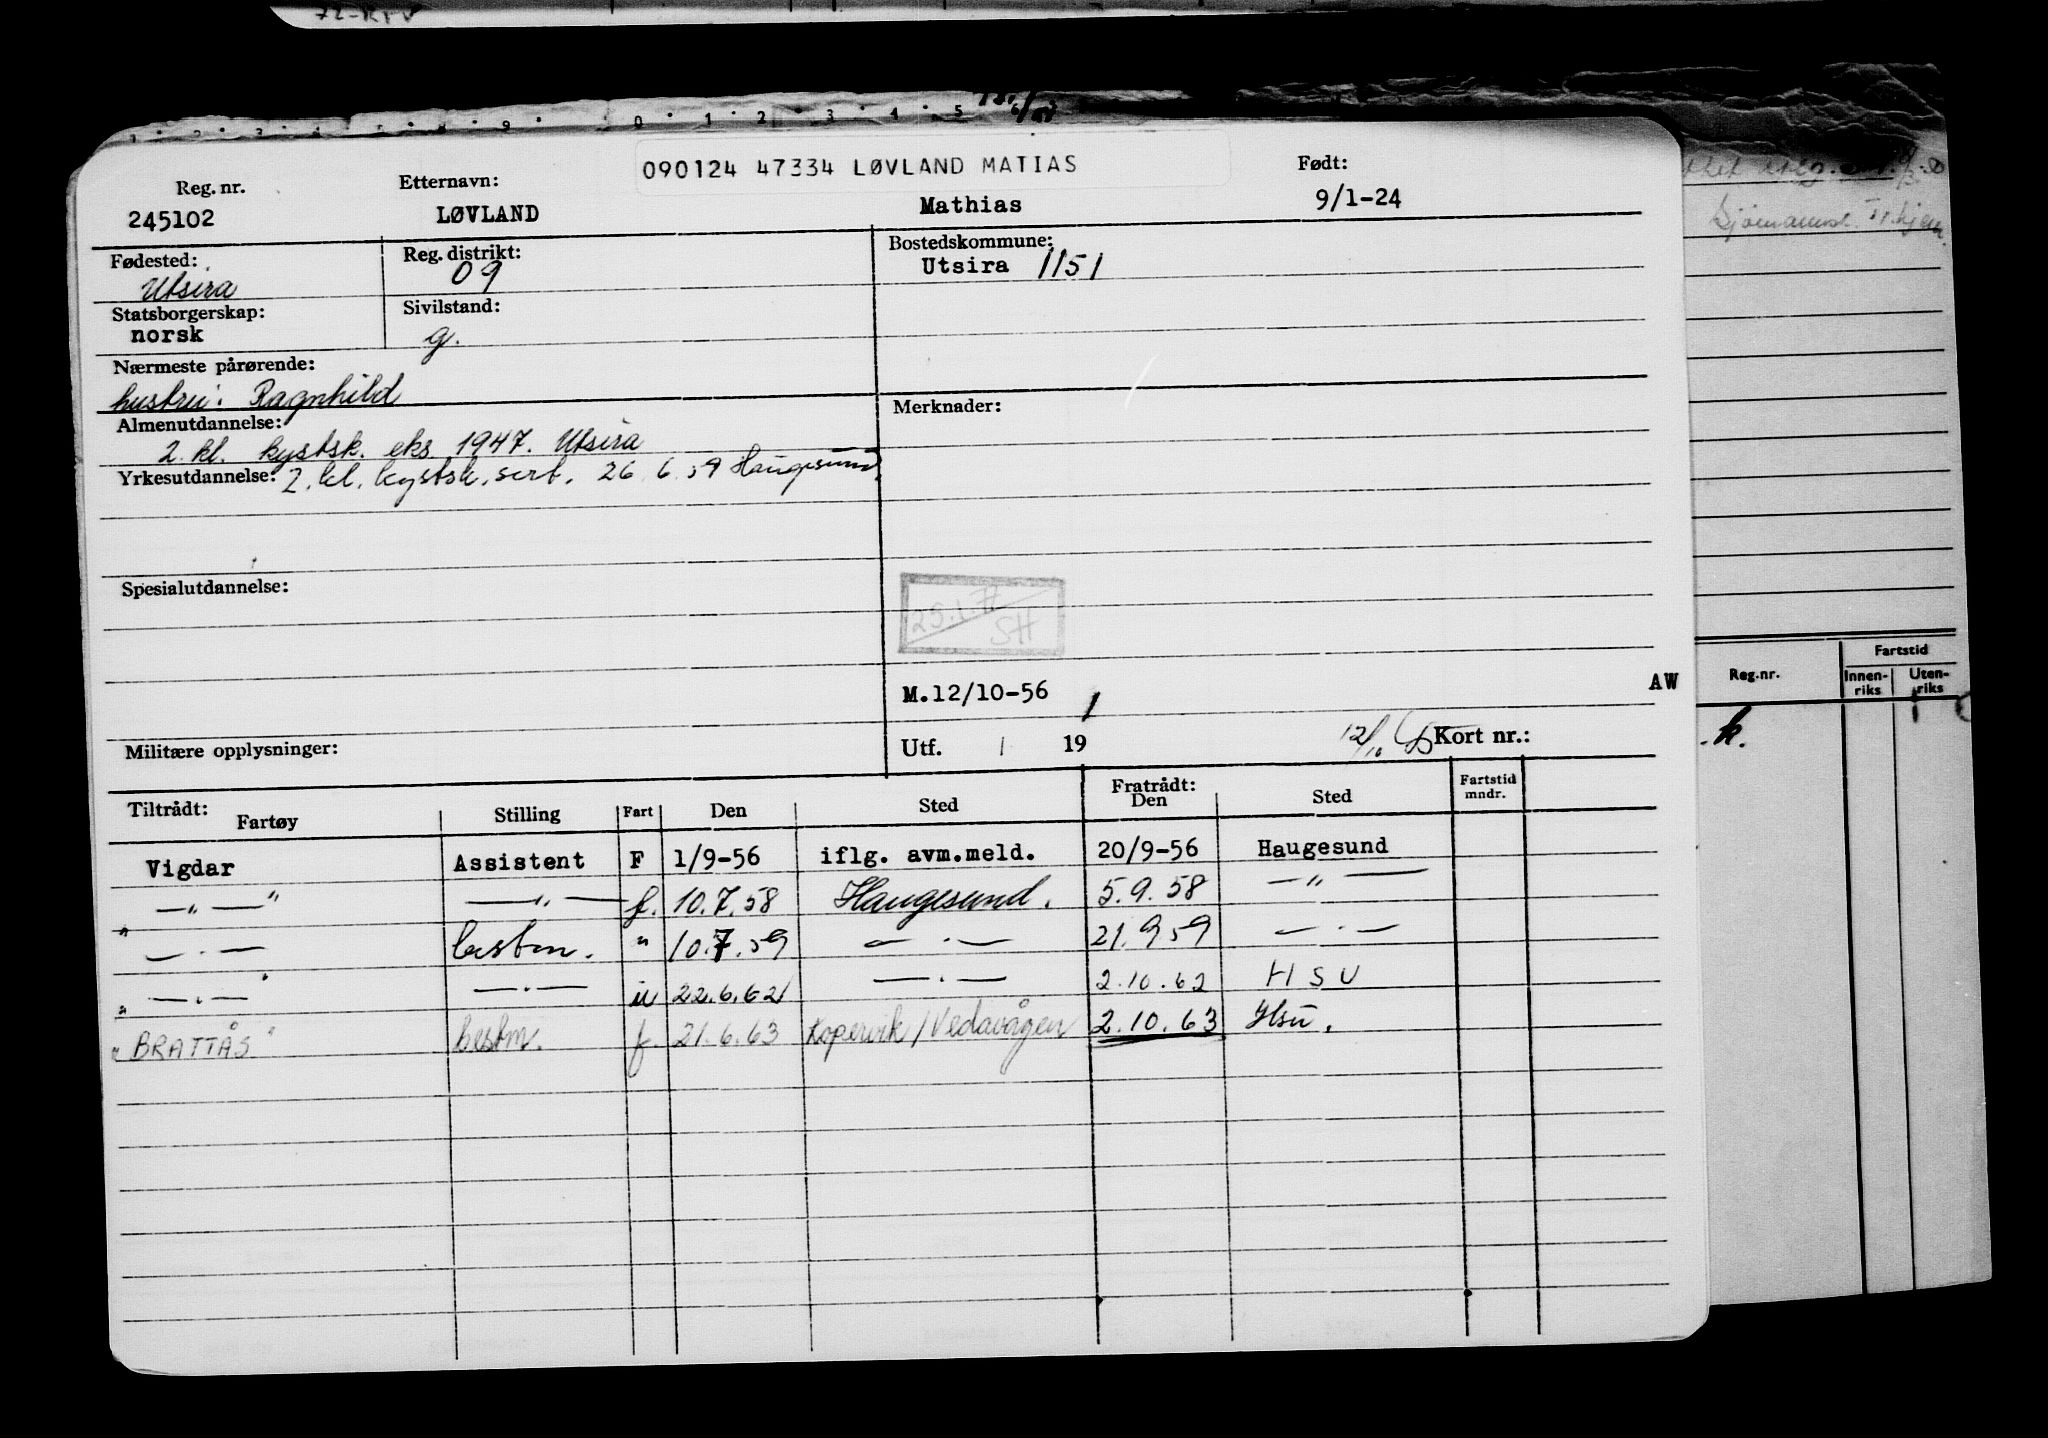 0 1 2 3 4 5
090124 47334 LØVLAND MATIAS
Reg. nr. Etternavn: Født:
245102 LØVLAND Mathias 9/1-24
Fødested: Reg. distrikt: Bostedskommune:
Utsira 09 Utsira 1151
Statsborgerskap: Sivilstand:
norsk g.
Nærmeste pårørende:
hustru: Ragnhild
Almenutdannelse: Merknader:
2. kl. kystsk. eks 1947. Utsira
Yrkesutdannelse: 2. kl. kystsk. sert. 26.6.59 Haugesund
Spesialutdannelse:
SH
M.12/10-56 AW
Militære opplysninger: Utf. 19 Kort nr.:
Tiltrådt: Fratrådt:
Fartøy Stilling Fart Den Sted Den Sted Fartstid mndr.
Vigdar Assistent F 1/9-56 iflg. avm.meld. 20/9-56 Haugesund
— " — " — " — f. 10.7.58 Haugesund. 5.9.58 — " —
" — . — bestm. " 10.7.59 — . — 21.9.59 — . —
" — . — " — . — u 22.6.62 — . — 2.10.62 H S U
" BRATTÅS " bestm. f. 21.6.63 Kopervik / Vedavågen 2.10.63 Hsu.
Reg.nr. Fartstid
Innenriks Utenriks
k.